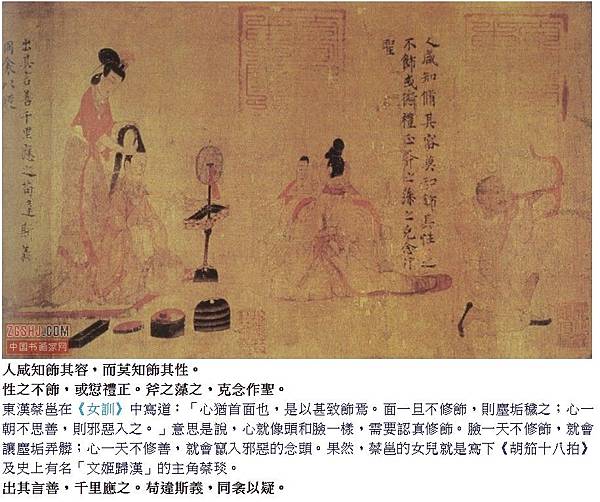 人咸知脩其容莫知飾其性之
不飾或愆禮正斧之藻之克念作
聖
出其言善千里應之苟違斯義
同衾以疑
ZGSHJ.COM
中国书画家网
人咸知飾其容，而莫知飾其性。
性之不飾，或愆禮正。斧之藻之，克念作聖。
東漢蔡邕在《女訓》中寫道：「心猶首面也，是以甚致飾焉。面一旦不修飾，則塵垢穢之；心一
朝不思善，則邪惡入之。」意思是說，心就像頭和臉一樣，需要認真修飾。臉一天不修飾，就會
讓塵垢弄髒；心一天不修善，就會竄入邪惡的念頭。果然，蔡邕的女兒就是寫下《胡笳十八拍》
及史上有名「文姬歸漢」的主角蔡琰。
出其言善，千里應之。苟違斯義，同衾以疑。